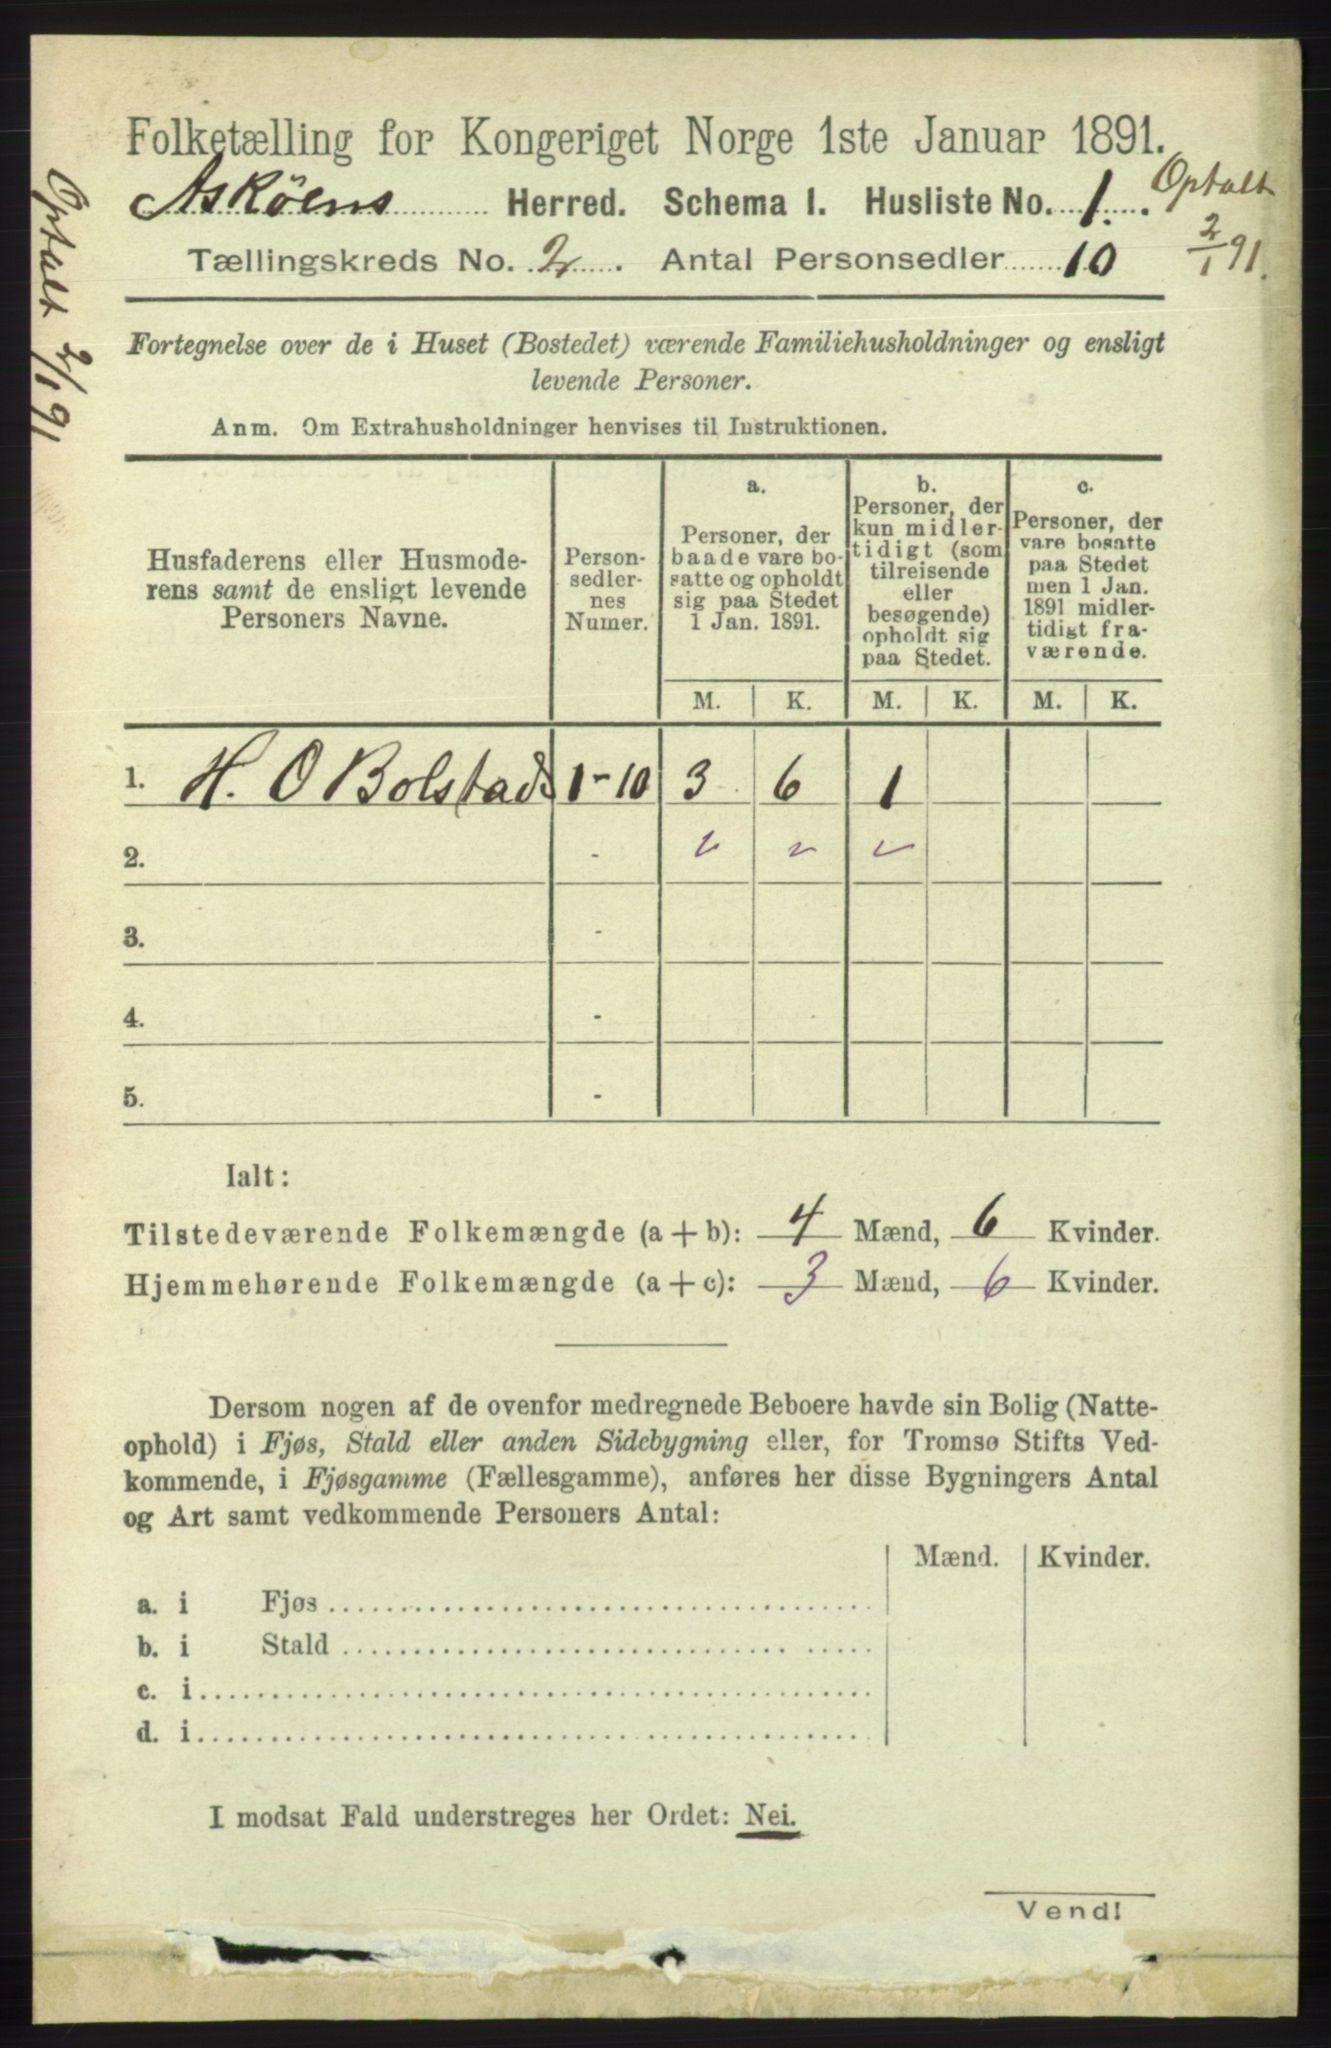 Folketælling for Kongeriget Norge 1ste Januar 1891.
Askøens Herred. Schema I. Husliste No. 1.
Optalt 2/1 91.
Tællingskreds No. 2. Antal Personsedler 10
Optalt 2/1 91
Fortegnelse over de i Huset (Bostedet) værende Familiehusholdninger og ensligt
levende Personer.
Anm. Om Extrahusholdninger henvises til Instruktionen.
Husfaderens eller Husmode-
rens samt de ensligt levende
Personers Navne.
Person-
sedler-
nes
Numer.
a.
Personer, der
baade vare bo-
satte og opholdt
sig paa Stedet
1 Jan. 1891.
b.
Personer, der
kun midler-
tidigt (som
tilreisende
eller
besøgende)
opholdt sig
paa Stedet.
c.
Personer, der
vare bosatte
paa Stedet
men 1 Jan.
1891 midler-
tidigt fra-
værende.
M. K. M. K. M. K.
1. H. O Bolstad 1-10 3 6 1
2. -
3. -
4. -
5. -
Ialt:
Tilstedeværende Folkemængde (a + b): 4 Mænd, 6 Kvinder.
Hjemmehørende Folkemængde (a + c): 3 Mænd, 6 Kvinder.
Dersom nogen af de ovenfor medregnede Beboere havde sin Bolig (Natte-
ophold) i Fjøs, Stald eller anden Sidebygning eller, for Tromsø Stifts Ved-
kommende, i Fjøsgamme (Fællesgamme), anføres her disse Bygningers Antal
og Art samt vedkommende Personers Antal:
Mænd. Kvinder.
a. i Fjøs
b. i Stald
c. i
d. i
I modsat Fald understreges her Ordet: Nei.
Vend!